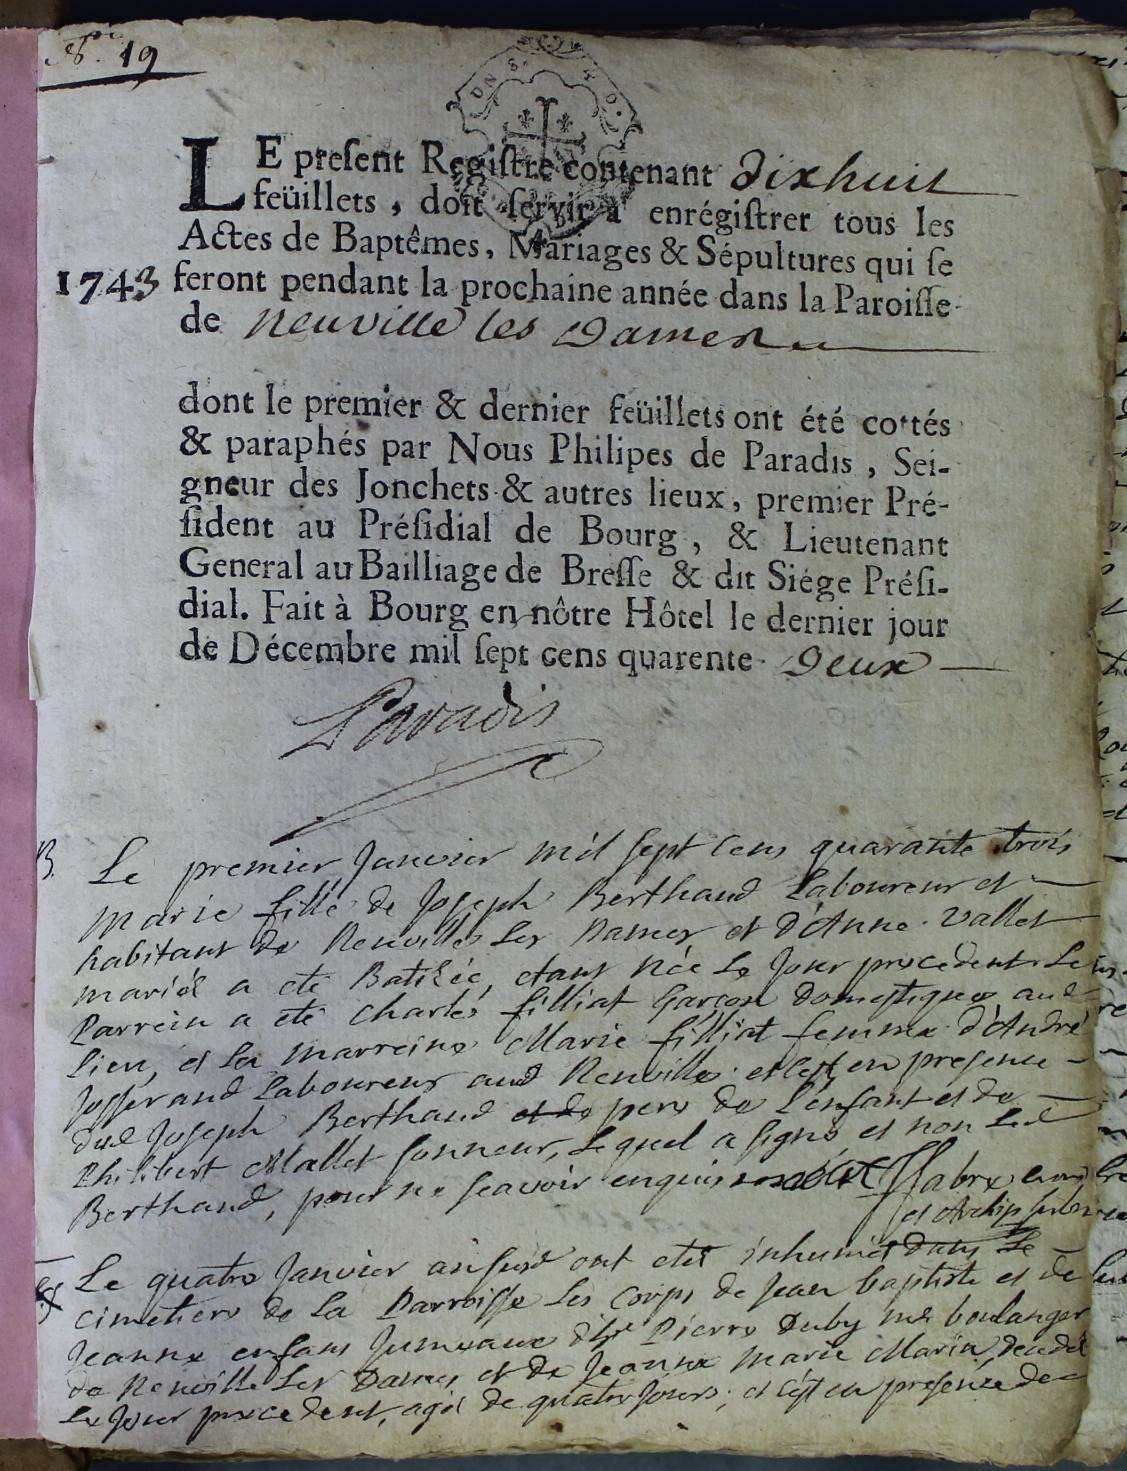 19
LE preſent Regiſtre contenant dixhuit
feüillets, doit ſervir à enrégiſtrer tous les
Actes de Baptêmes, Mariages & Sépultures qui ſe
1743 feront pendant la prochaine année dans la Paroiſſe
de Neuville les Dames
dont le premier & dernier feüillets ont été cottés
& paraphés par Nous Philipes de Paradis, Sei-
gneur des Jonchets & autres lieux, premier Pré-
ſident au Préſidial de Bourg, & Lieutenant
General au Bailliage de Breſſe & dit Siége Préſi-
dial. Fait à Bourg en nôtre Hôtel le dernier jour
de Décembre mil ſept cens quarente Deux
Paradis
B. Le premier Janvier mil sept cens quarante trois
Marie fille de Joseph Berthaud Laboureur et
habitant de Neuville Les Dames et d'Anne Vallet
mariés a eté Batisée, etant Née Le Jour precedent Le
Parrein a eté charles filliat Garçon domestique aud
Lieu, et La marreine Marie filliat femme d'André
Josserand Laboureur aud Neuville et c'est en presence
dud Joseph Berthaud et de pere de L'enfant et de
Philibert Mallet sonneur, Lequel a signé et non Led
Berthaud, pour ne scavoir enquis
et Archip
Le quatre Janvier ont eté inhumés dans Le
cimetiere de La Parroisse Les Corps de Jean baptiste et de
Jeanne enfans Jumeaux Pierre Duby boulanger
de Neuville Les Dames et de Jeanne Marie Marin decedés
Le Jour precedent, agés de quatre Jours, et c'est en presence de